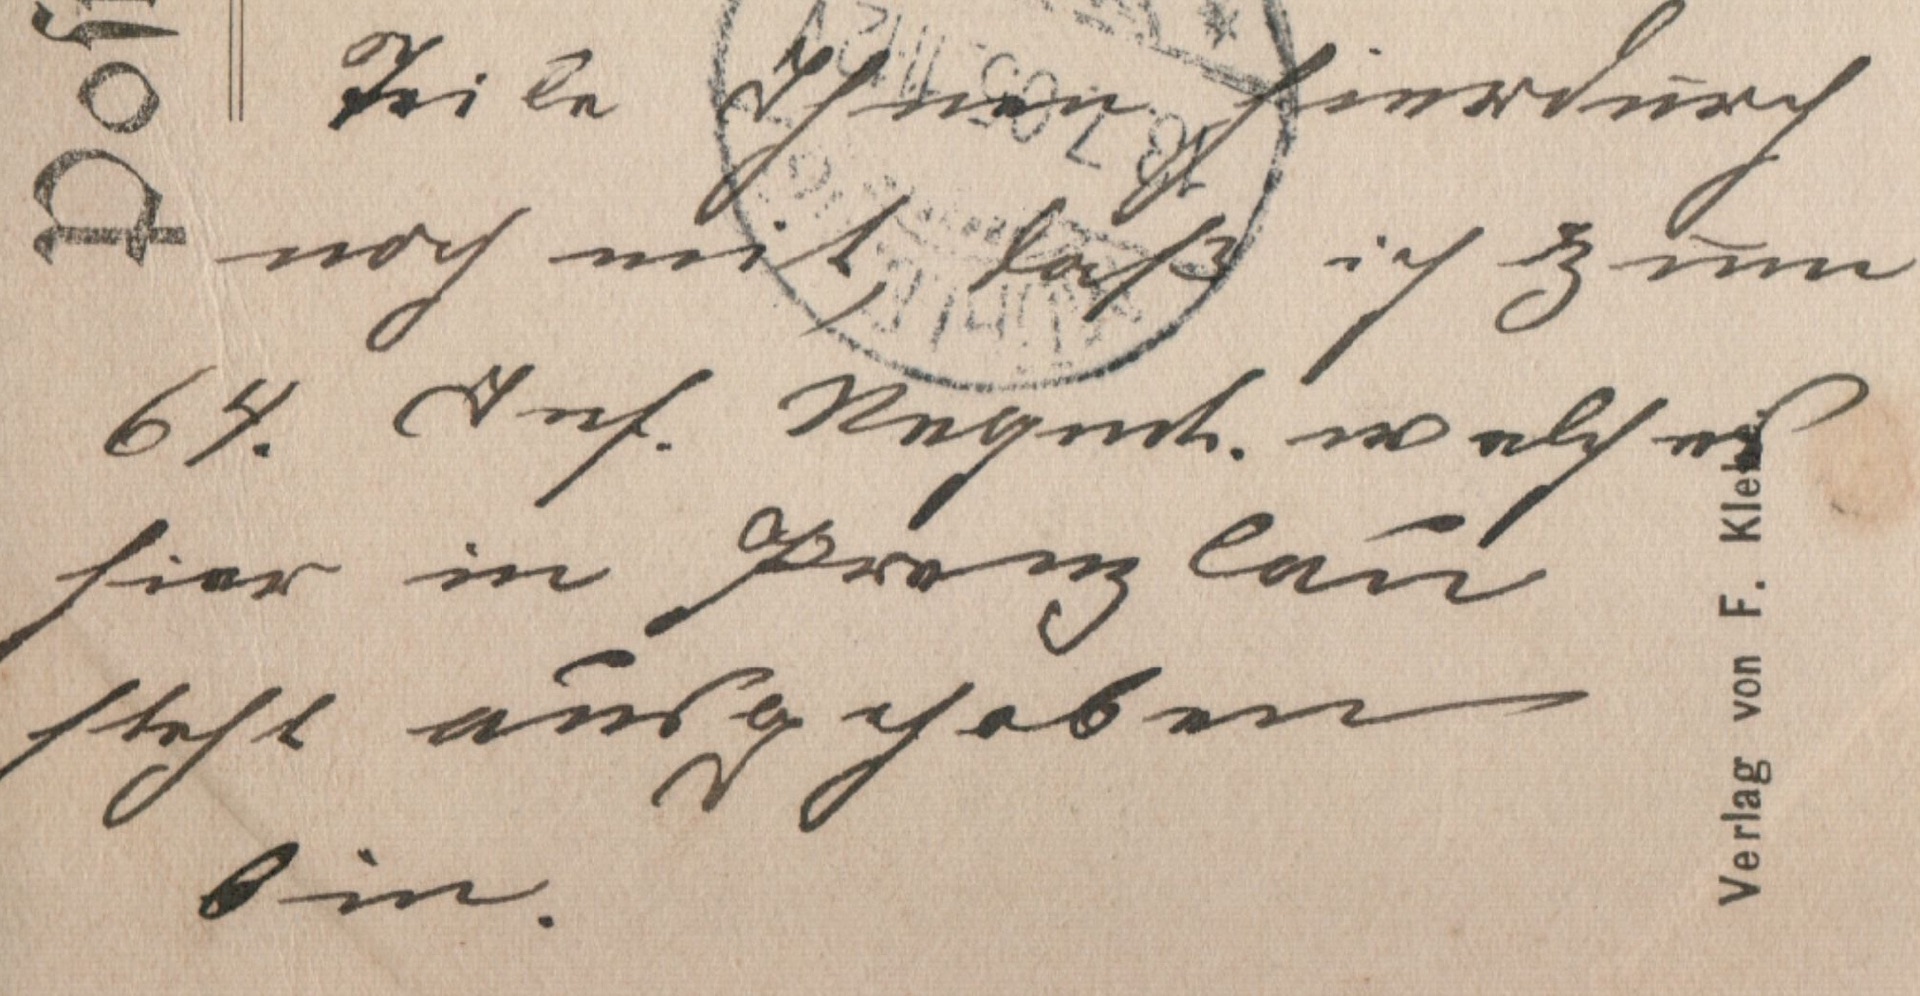 Teile Ihnen hierdurch
noch mit, daß ich zum
64. Inf. Regmt. welches
hier in Prenzlau
steht ausgehoben
bin.
Verlag von F. Kleb
Post
13.7.05. 11-12V